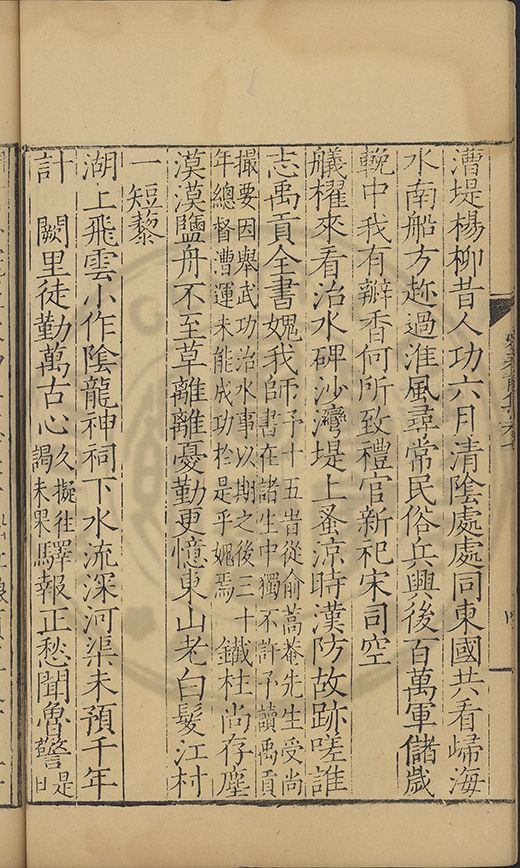 漕堤楊柳昔人功六月清陰處處同東國共看歸海
水南船方趂過淮風尋常民俗兵興後百萬軍儲歲
輓中我有瓣香何所致禮官新祀宋司空
艤櫂來看治水碑沙灣堤上蚤涼時漢防故跡嗟誰
志禹貢全書媿我師予十五旹從俞蒿菴先生受尚書在諸生中獨不許予讀禹貢
撮要因舉武功治水事以期之後三十年總督漕運未能成功於是乎媿焉鐵柱尚存塵
漠漠鹽舟不至草離離憂勤更憶東山老白髮江村
一短藜
湖上飛雲小作陰龍神祠下水流深河渠未預千年
計闕里徒勤萬古心久擬往謁未果驛報正愁聞魯警是日